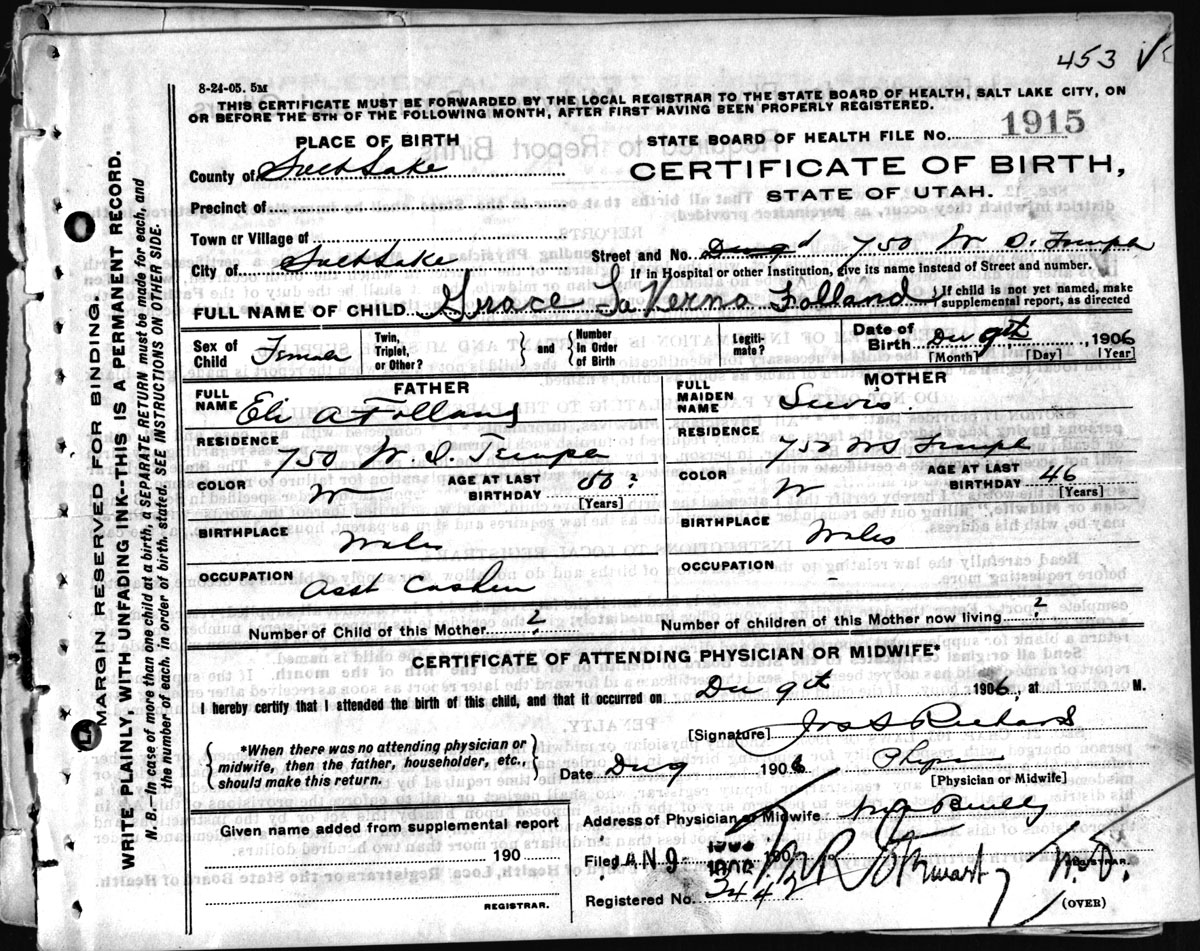 453 V
8-24-05. 5M
THIS CERTIFICATE MUST BE FORWARDED BY THE LOCAL REGISTRAR TO THE STATE BOARD OF HEALTH, SALT LAKE CITY, ON
OR BEFORE THE 5TH OF THE FOLLOWING MONTH, AFTER FIRST HAVING BEEN PROPERLY REGISTERED.
PLACE OF BIRTH
STATE BOARD OF HEALTH FILE NO. 1915
County of Salt Lake
CERTIFICATE OF BIRTH,
STATE OF UTAH.
Precinct of
Town or Village of
Street and No. 750 W. S. Temple
City of Salt Lake
If in Hospital or other Institution, give its name instead of Street and number.
FULL NAME OF CHILD Grace La Verna Folland } If child is not yet named, make supplemental report, as directed
Sex of Child Female
Twin, Triplet, or Other?
} and {
Number in Order of Birth
Legitimate?
Date of Birth Dec 9th, 1906
[Month] [Day] [Year]
FATHER
FULL NAME Eli A Folland
RESIDENCE 750 W. S. Temple
COLOR W
AGE AT LAST BIRTHDAY 50?
[Years]
BIRTHPLACE Wales
OCCUPATION Asst Cashier
MOTHER
FULL MAIDEN NAME Lewis
RESIDENCE 750 W S Temple
COLOR W
AGE AT LAST BIRTHDAY 46
[Years]
BIRTHPLACE Wales
OCCUPATION -
Number of Child of this Mother ?
Number of children of this Mother now living ?
CERTIFICATE OF ATTENDING PHYSICIAN OR MIDWIFE*
I hereby certify that I attended the birth of this child, and that it occurred on Dec 9th 1906, at M.
{ *When there was no attending physician or
midwife, then the father, householder, etc.,
should make this return. }
[Signature] Jos S Richards
Date Dec 9 1906
[Physician or Midwife]
Address of Physician or Midwife
Given name added from supplemental report
190
REGISTRAR.
Filed JAN 9 190
REGISTRAR.
Registered No.
M.D.
(OVER)
MARGIN RESERVED FOR BINDING.
WRITE PLAINLY, WITH UNFADING INK--THIS IS A PERMANENT RECORD.
N. B.--In case of more than one child at a birth, a SEPARATE RETURN must be made for each, and
the number of each, in order of birth, stated. SEE INSTRUCTIONS ON OTHER SIDE.